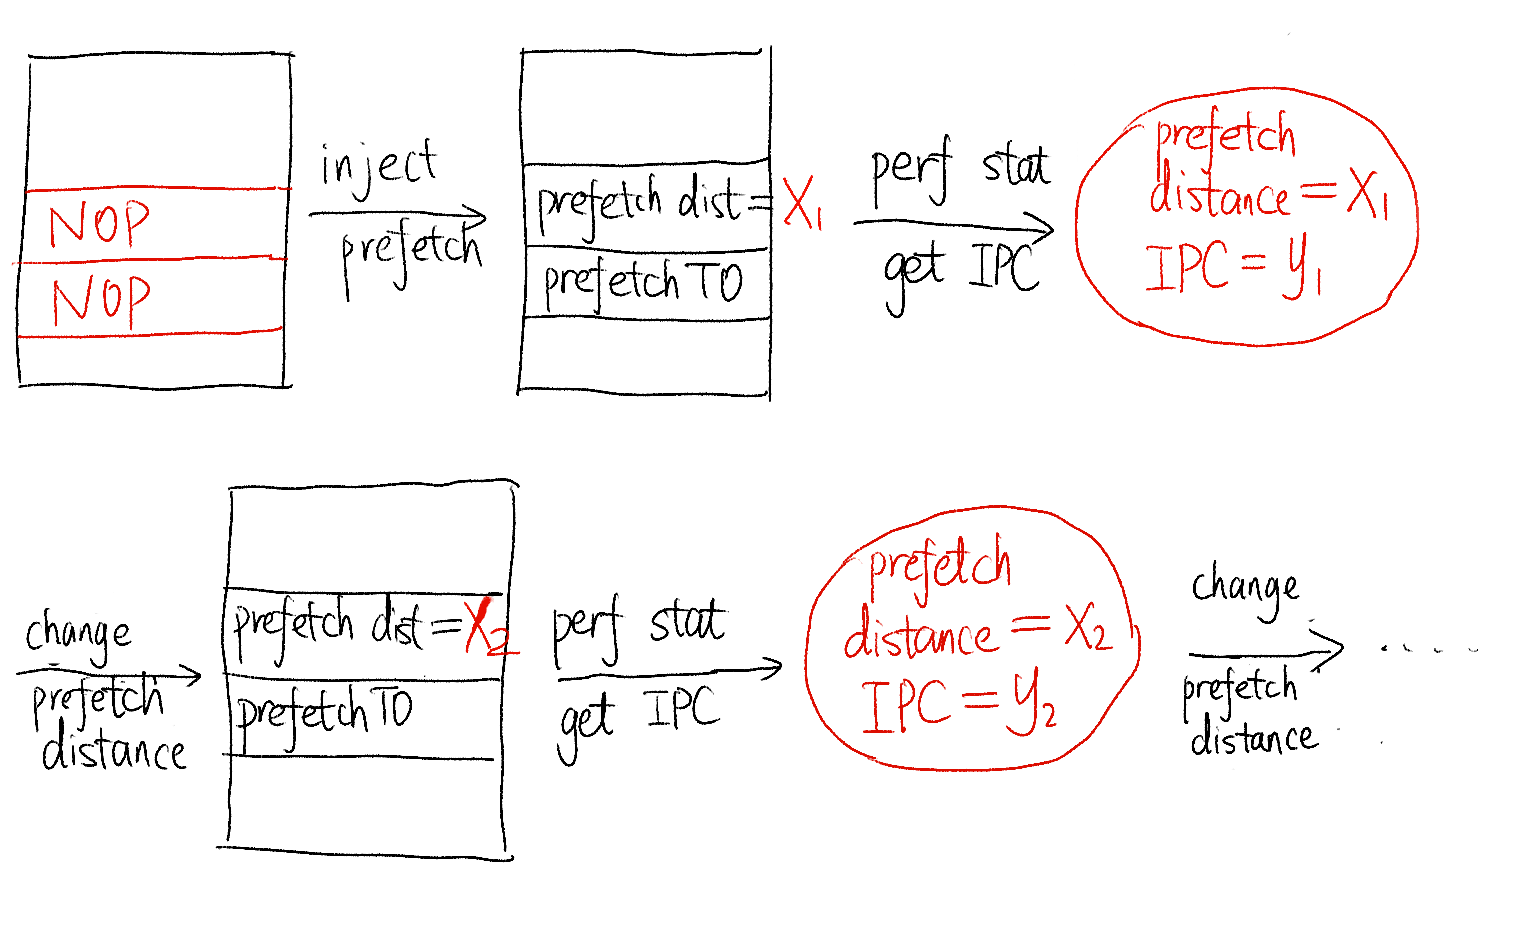 NOP
NOP
inject
prefetch
prefetch dist = X₁
prefetch T0
perf stat
get IPC
prefetch
distance = X₁
IPC = y₁
change
prefetch
distance
prefetch dist = X₂
prefetch T0
perf stat
get IPC
prefetch
distance = X₂
IPC = y₂
change
prefetch
distance
.....